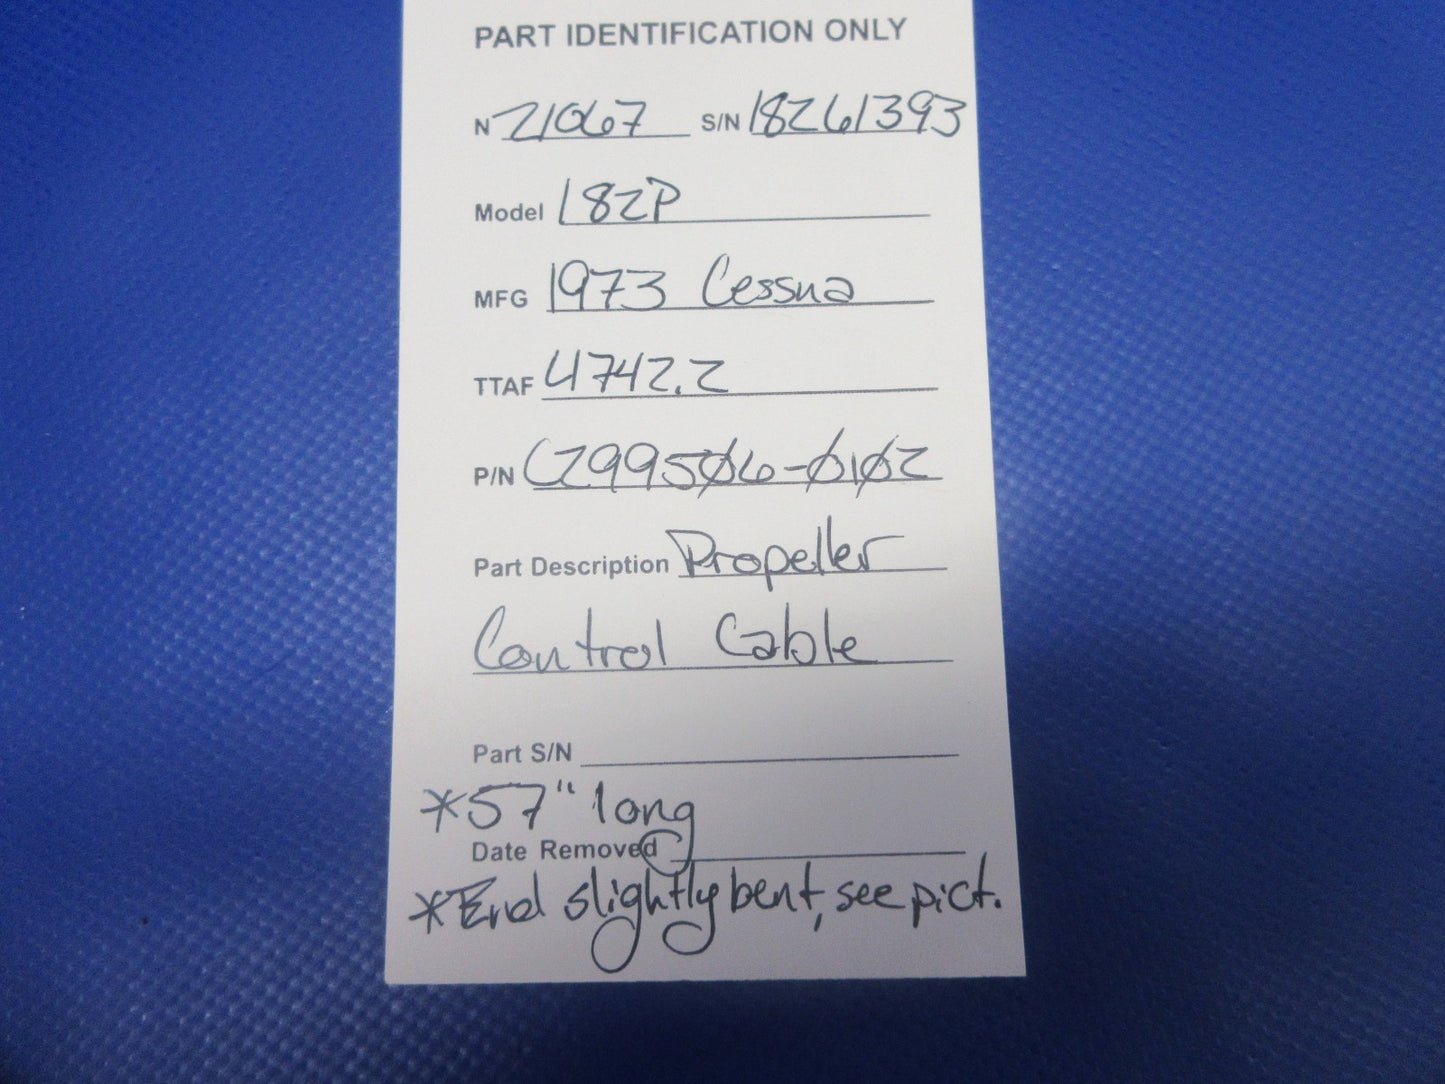 PART IDENTIFICATION ONLY
N 21067 S/N 18261393
Model 182P
MFG 1973 Cessna
TTAF 4742.2
P/N C299506-0102
Part Description Propeller
Control Cable
Part S/N
*57" long
Date Removed
*End slightly bent, see pict.